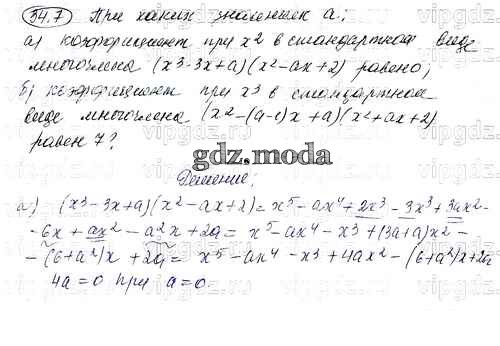 34.7 При каких значениях a:
а) коэффициент при x2 в стандартном виде
многочлена (x3-3x+a)(x2-ax+2) равен 0;
б) коэффициент при x3 в стандартном
виде многочлена (x2-(a-1)x+a)(x2+ax+2)
равен 7?
gdz.moda
Решение:
а) (x³-3x+a)(x²-ax+2)=x⁵-ax⁴+2x³-3x³+3ax2-
-6x+ax²-a²x+2a=x⁵-ax⁴-x³+(3a+a)x²-
-(6+a²)x+2a=x⁵-ax⁴-x³+4ax²-(6+a²)x+2a
4a=0 при a=0.